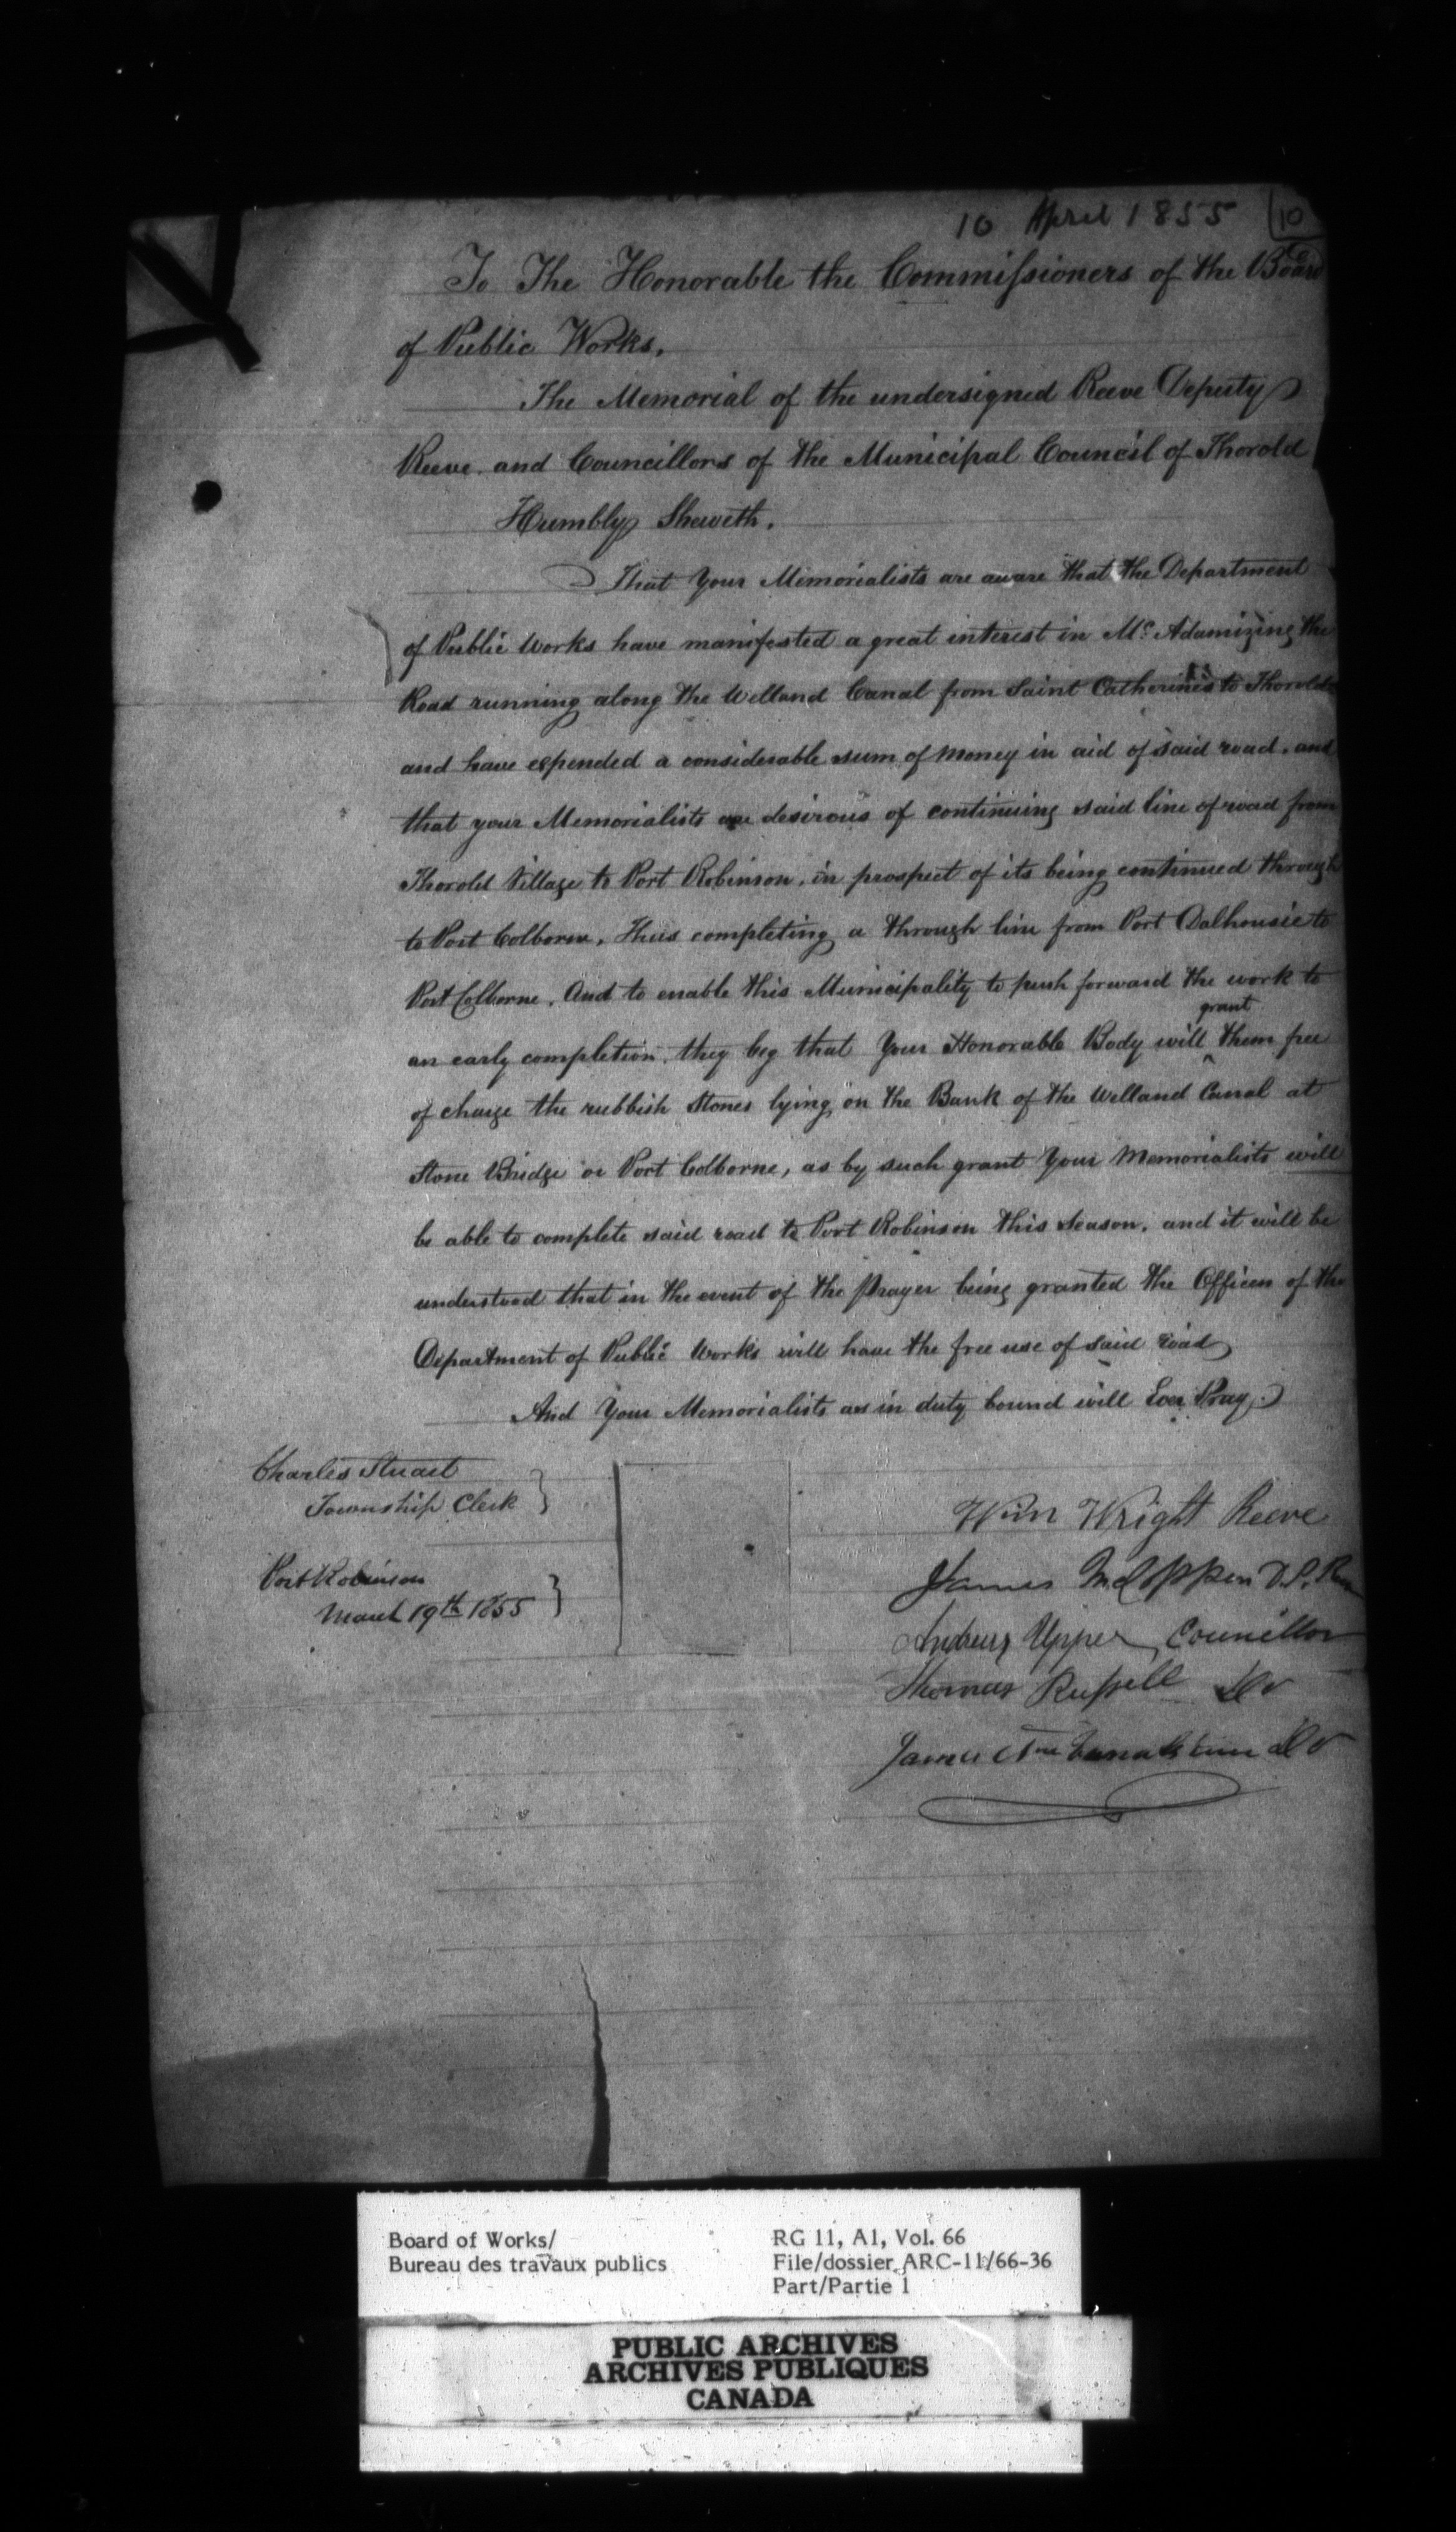 10 April 1855 10
To The Honorable the Commissioners of the Board
of Public Works.
The Memorial of the undersigned Reeve Deputy
Reeve and Councillors of the Municipal Council of Thorold
Humbly Sheweth.
That Your Memorialists are aware that the Department
of Public Works have manifested a great interest in Mc Adamizing the
Road running along the Welland Canal from Saint Catherines to Thorold
and have expended a considerable sum of money in aid of said road. and
that your Memorialists are desirous of continuing said line of road from
Thorold Village to Port Robinson, in prospect of its being continued through
to Port Colborne. Thus completing a through line from Port Dalhousie to
Port Colborne. And to enable this Municipality to push forward the work to
an early completion, they beg that Your Honorable Body will grant them free
of charge the rubbish Stones lying on the Bank of the Welland Canal at
Stone Bridge or Port Colborne, as by such grant Your Memorialists will
be able to complete said road to Port Robinson this Season, and it will be
understood that in the event of the Prayer being granted the Officers of the
Department of Public Works will have the free use of said road
And Your Memorialists as in duty bound will Ever Pray.
Charles Stuart
Township Clerk
Port Robinson
March 19th 1855
Wm Wright Reeve
James D.P. Reeve
Andrew Upper, Councillor
Thomas Russell Do
James Do
Board of Works/
Bureau des travaux publics
RG 11, A1, Vol. 66
File/dossier ARC-11/66-36
Part/Partie 1
PUBLIC ARCHIVES
ARCHIVES PUBLIQUES
CANADA